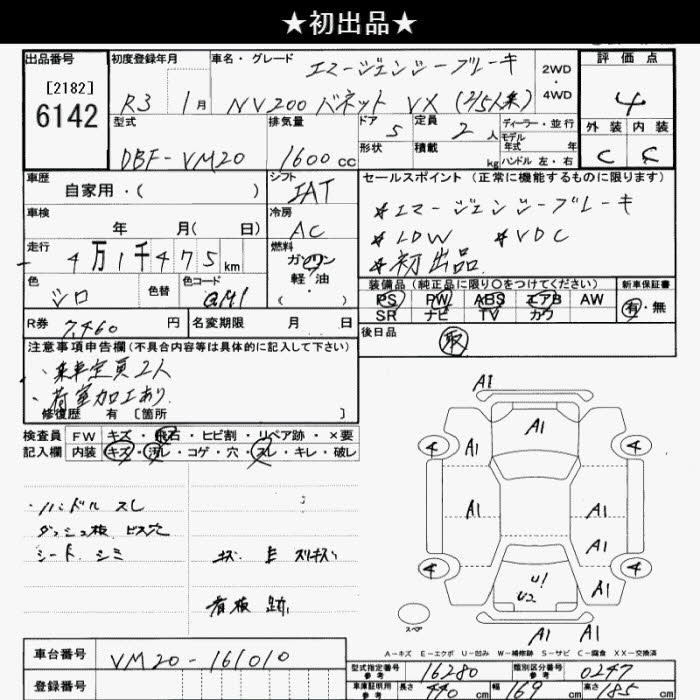 ★初出品★
出品番号 初度登録年月 車名・グレード エマージェンシーブレーキ 2WD・4WD 評価点
[2182] R3 1月 NV200 バネット VX (2/5人乗) 4
6142 型式 排気量 ドア 定員 ディーラー・並行 外装 内装
DBF-VM20 1600cc 5 2人 モデル年式 年式 C C
形状 積載 kg ハンドル 左・右
車歴 シフト セールスポイント(正常に機能するものに限ります)
自家用・( ) IAT ＊エマージェンシーブレーキ
車検 冷房 ＊LDW ＊VDC
年 月( 日) AC ＊初出品
走行 燃料
4万1千475km ガソリン
色 色替 色コード 軽油
シロ QM1 ・( )
装備品(純正品に限り○をつけてください) 新車保証書
PS PW ABS エアB AW 有・無
SR ナビ TV カワ
R券 7,460円 名変期限 月 日 後日品 取
注意事項申告欄(不具合内容等は具体的に記入して下さい)
・乗車定員2人
・荷室加工あり
修復歴 有 [箇所 ]
検査員 FW キズ・飛石・ヒビ割・リペア跡・×要
記入欄 内装 キズ・汚レ・コゲ・穴・スレ・キレ・破レ
A1
A1
4 A1 4
・ハンドル スレ
A1 A1
ダッシュ板 ビス穴
シート シミ キズ E スリキズ
A1
4 4
U1 A1
U2
看板跡
スペア
A1 A1
A-キズ E-エクボ U-凹み W-補修跡 S-サビ C-腐食 XX-交換済
車台番号 VM20-161010
型式指定番号 参考 16280 類別区分番号 参考 0247
登録番号
車庫証明用 参考 長さ 440cm 幅 169cm 高さ 185cm